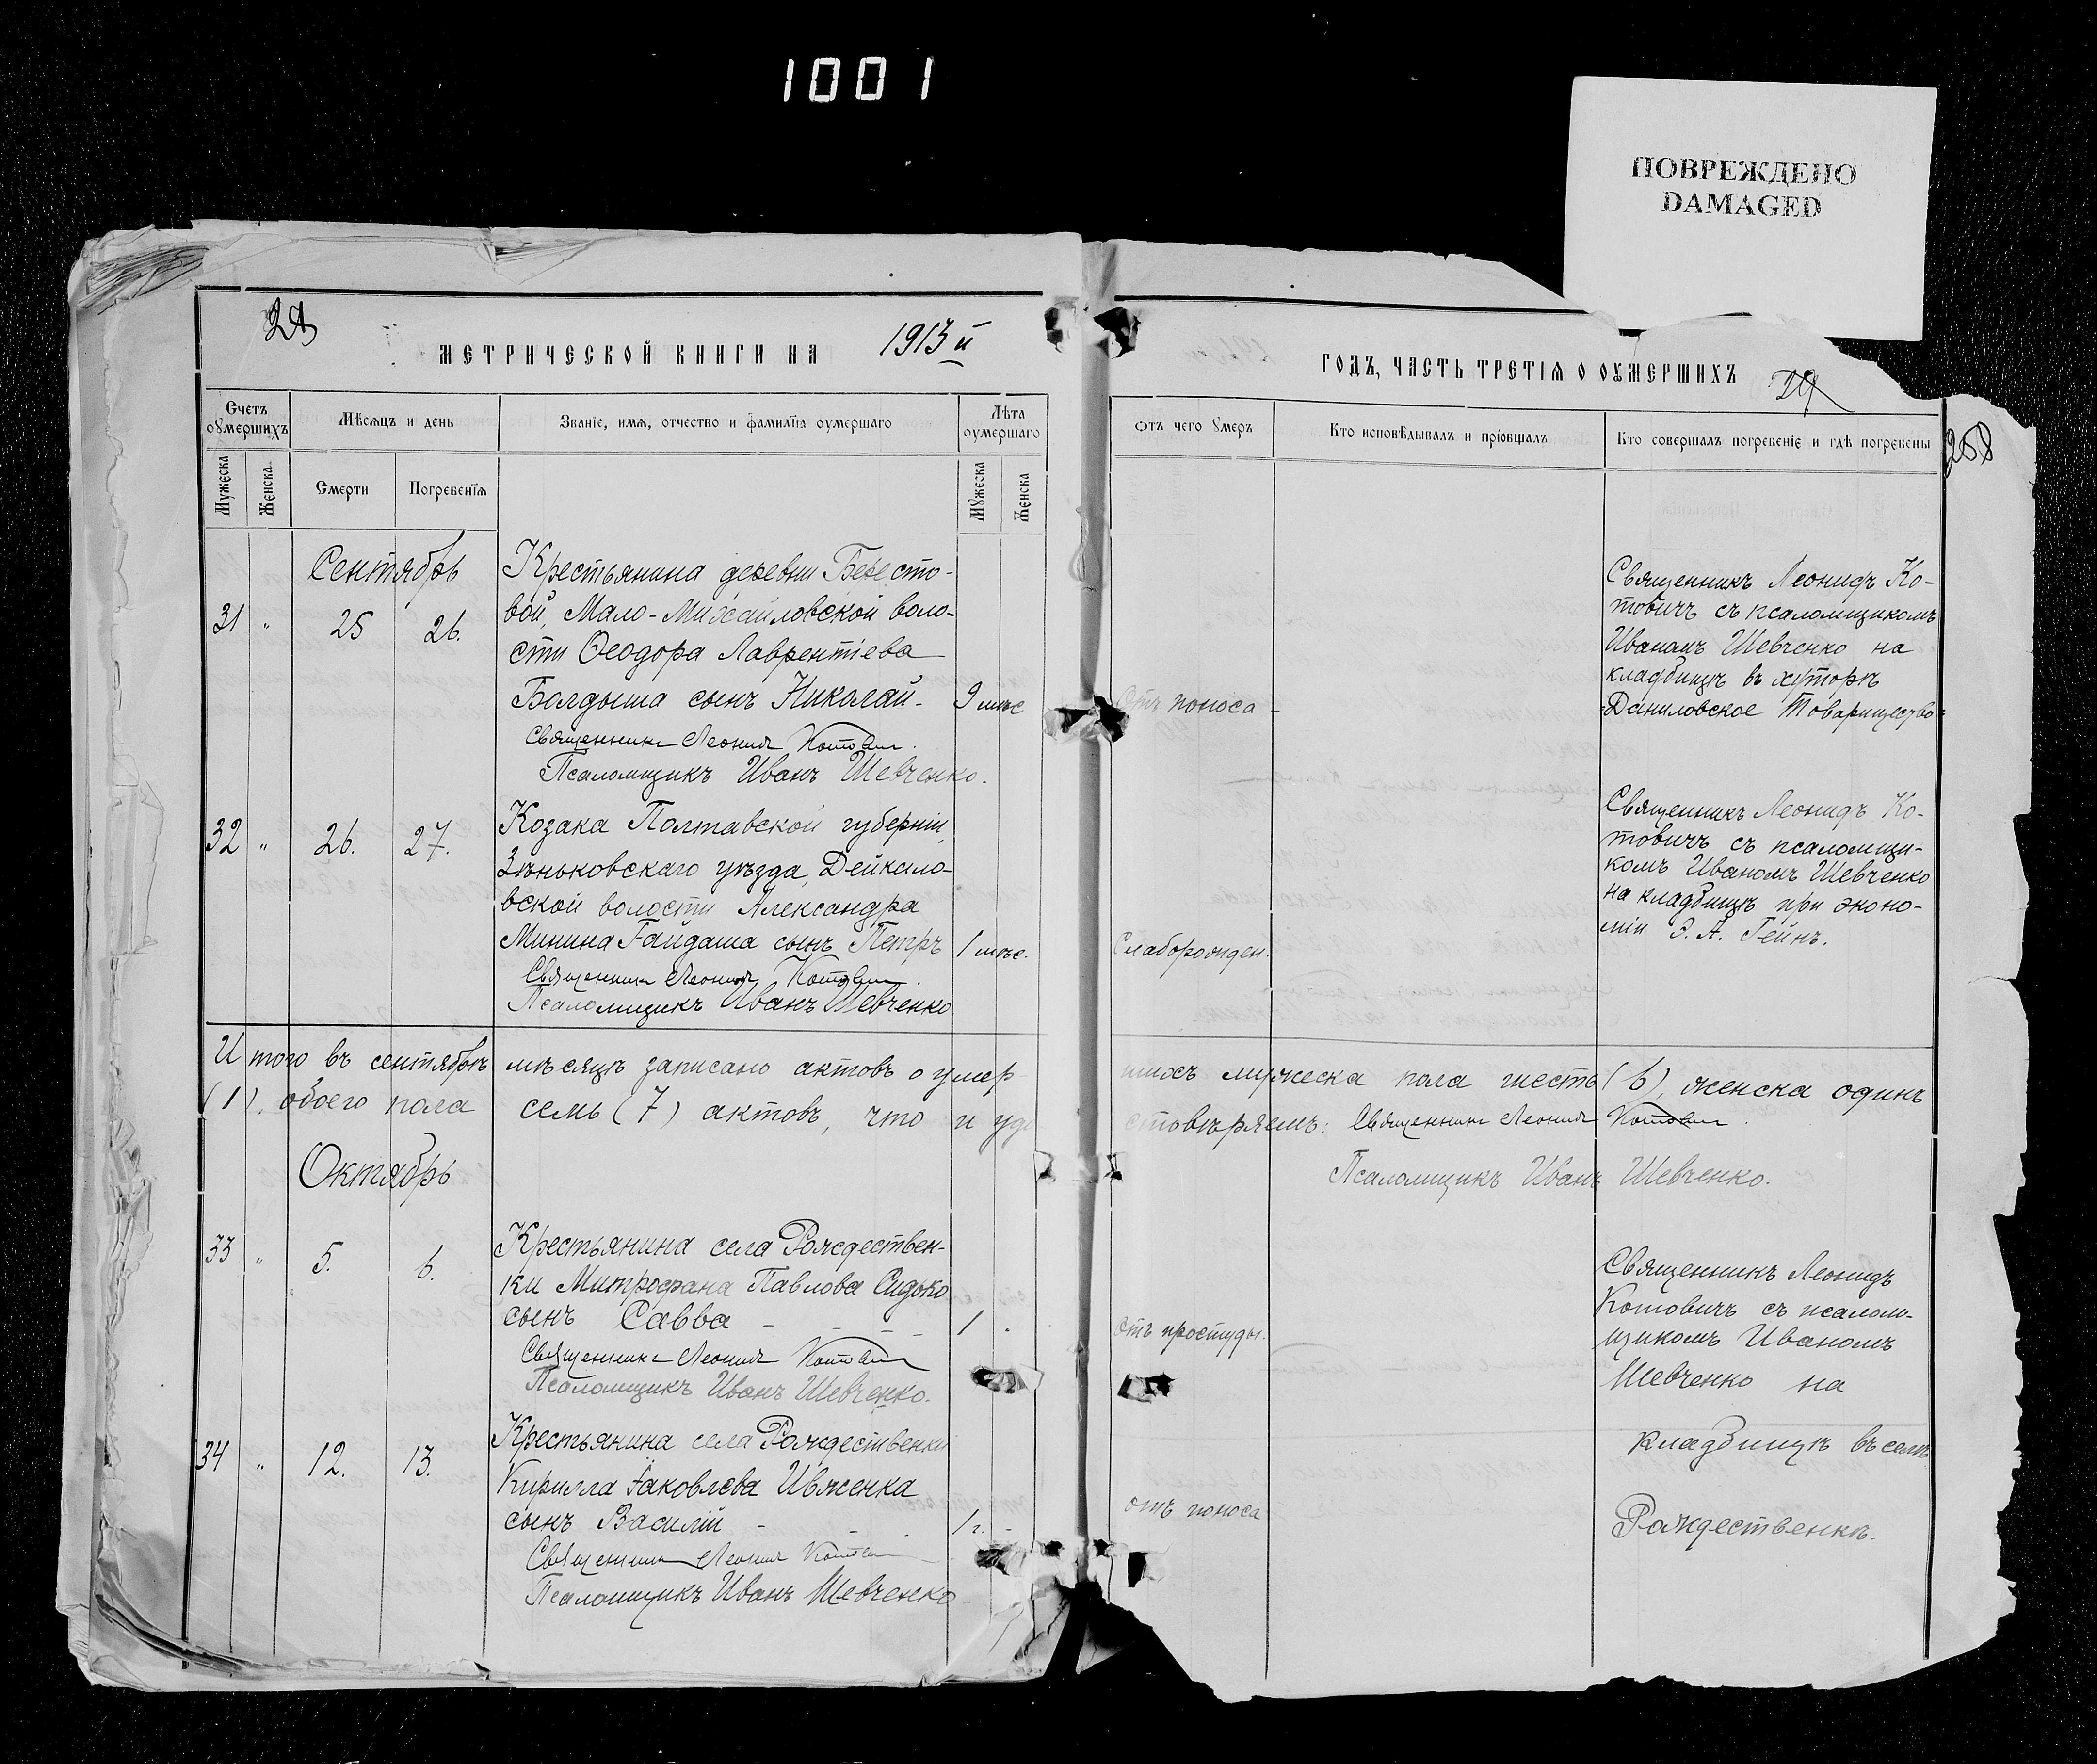 1001
ПОВРЕЖДЕНО
DAMAGED
28
МЕТРИЧЕСКОЙ КНИГИ НА 1913 й
ГОДЪ, ЧАСТЬ ТРЕТІЯ О ОУМЕРШИХЪ
29
258
Счетъ оумершихъ
Мѣсяцъ и день
Званіе, имя, отчество и фамилія оумершаго
Лѣта оумершаго
Отъ чего умеръ
Кто исповѣдывалъ и пріобщалъ
Кто совершалъ погребеніе и гдѣ погребены
Мужеска
Женска
Смерти
Погребенія
Мужеска
Женска
Сентябрь
31 " 25 26.
Крестьянина деревни Бересто-
вой, Мало-Михайловской воло-
сти Ѳеодора Лаврентіева
Болдыша сынъ Николай - 9 мѣс
Священникъ Леонидъ Котовичъ.
Псаломщикъ Иванъ Шевченко.
Отъ поноса -
Священникъ Леонидъ Ко-
товичъ съ псаломщикомъ
Иваномъ Шевченко на
кладбищѣ въ хуторѣ
Даниловское Товарищество
32 " 26. 27.
Козака Полтавской губерніи,
Зѣньковскаго уѣзда, Дейкало-
вской волости Александра
Минина Гайдаша сынъ Петръ 1 мѣс.
Священникъ Леонидъ Котовичъ.
Псаломщикъ Иванъ Шевченко
Слаборожден.
Священникъ Леонидъ Ко-
товичъ съ псаломщи-
комъ Иваномъ Шевченко
на кладбищѣ при эконо-
міи Э. А. Гейнъ.
Итого въ сентябрѣ мѣсяцѣ записано актовъ о умер
шихъ мужеска пола шесть (6), женска одинъ
(1). обоего пола семь (7) актовъ, что и удо
стовѣряемъ: Священникъ Леонидъ Котовичъ.
Псаломщикъ Иванъ Шевченко.
Октябрь
33 " 5. 6.
Крестьянина села Рождествен-
ки Митрофана Павлова Сидько
сынъ Савва - - - 1 .
Священникъ Леонидъ Котовичъ
Псаломщикъ Иванъ Шевченко.
отъ простуды.
Священникъ Леонидъ
Котовичъ съ псалом-
щикомъ Иваномъ
Шевченко на
34 " 12. 13.
Крестьянина села Рождественки
Кирилла Іаковлева Ивженка
сынъ Василій - - . 1 г. -
Священникъ Леонидъ Котовичъ
Псаломщикъ Иванъ Шевченко
отъ поноса
кладбищѣ въ селѣ
Рождественкѣ.